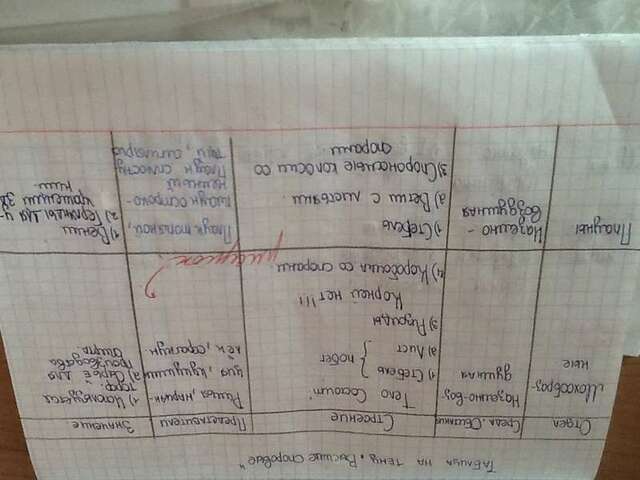 Таблица на тему „Высшие споровые"
Отдел
Среда. обитания
Строение
Представители
Значение
Мохообраз-
ные
Наземно-воз
душная
Тело Состоит
1) Стебель } побег
2) Лист
3) Ризоиды
Корней нет!!!
4) Коробочка со спорами
Риччия
кукушкин
лён, сфагнум
?
рисунок
1) Используется
торф.
2) Сырьё для
производства
спирта
Плауны
Наземно-
воздушная
1) Стебель
2) Ветви с листьями
3) Спороносные колоски со
спорами
Плаун
1) Венки
2)